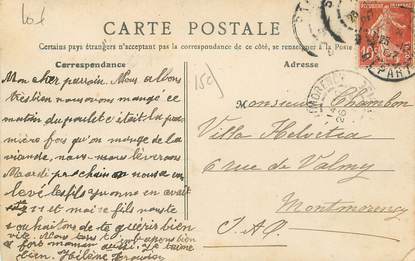 lot
CARTE POSTALE
Certains pays étrangers n'acceptant pas la correspondance de ce côté, se renseigner à la Poste
Correspondance
Adresse
15c
Mon cher parrain. Nous allons
très bien nous avons mangé ce
matin du poulet c'était la pre
mière fois qu'on mange de la
viande, nous nous lèverons
Mardi prochain on nous a en
levé les fils Yvonne en avait
11 et moi 10 fils nous te
souhaitons de te guérir bien
vite. Nous tous t'embrassons bien
fort maman aussi. Je t'aime
bien. Hélène
Monsieur Chambon
Villa Helvetia
6 rue de Valmy
Montmorency
S. et O.